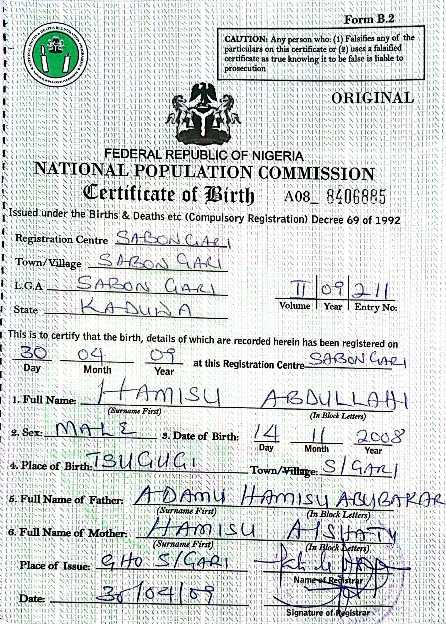 Form B.2
CAUTION: Any person who: (1) Falsifies any of the
particulars on this certificate or (2) uses a falsified
certificate as true knowing it to be false is liable to
prosecution
ORIGINAL
FEDERAL REPUBLIC OF NIGERIA
NATIONAL POPULATION COMMISSION
Certificate of Birth A08_ 8406885
Issued under the Births & Deaths etc (Compulsory Registration) Decree 69 of 1992
Registration Centre SABON GARI
Town/Village SABON GARI
L.G.A SABON GARI
II 09 211
State KADUNA
Volume Year Entry No:
This is to certify that the birth, details of which are recorded herein has been registered on
30 04 09 at this Registration Centre SABON GARI
Day Month Year
1. Full Name: HAMISU ABDULLAHI
(Surname First) (In Block Letters)
2. Sex: MALE 3. Date of Birth: 14 11 2008
Day Month Year
4. Place of Birth: TSUGUGI Town/Village: S/GARI
5. Full Name of Father: ADAMU HAMISU ABUBAKAR
(Surname First) (In Block Letters)
6. Full Name of Mother: HAMISU AISHATU
(Surname First) (In Block Letters)
Place of Issue: GHO S/GARI
Name of Registrar
Date: 30/04/09
Signature of Registrar